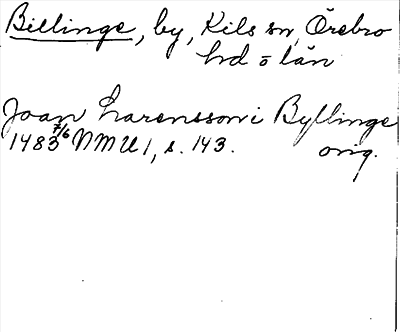 Billinge, by, Kils sn, Örebro
hd o län
Joan Larensson i Byllinge
1483 7/6 NMU 1, s. 143. orig.